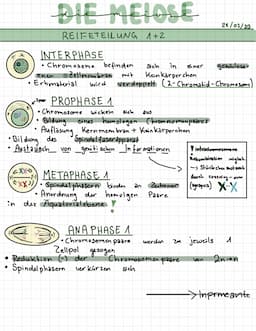 DIE MEIOSE
REIFETEILUNG 1+2
INTERPHASE
• Chromosome befinden sich in einer
Zellmembran mit Kernkörperchen
• Erbmaterial wird verdoppelt (2-Chromatid-Chromosom)
PROPHASE 1
• Chromosome wickeln sich
• Bildung eines homologen Chromosomenpaares
• Auflösung Kernmembran + Kernkörperchen
• Bildung des Spindelfaserapparat
• Austausch von genetischen Informationen
Rekombination möglich
durch crossing-over
METAPHASE 1
• Spindelphasern binden an Zentromer
• Anordnung der homologen Paare
in der Äquatorialebene
ANAPHASE 1
• Chromosomenpaare werden zu jeweils 1
Zellpol gezogen
• Reduktion (-) der Chromosomenpaare von 2n→n
• Spindelphasern verkürzen sich